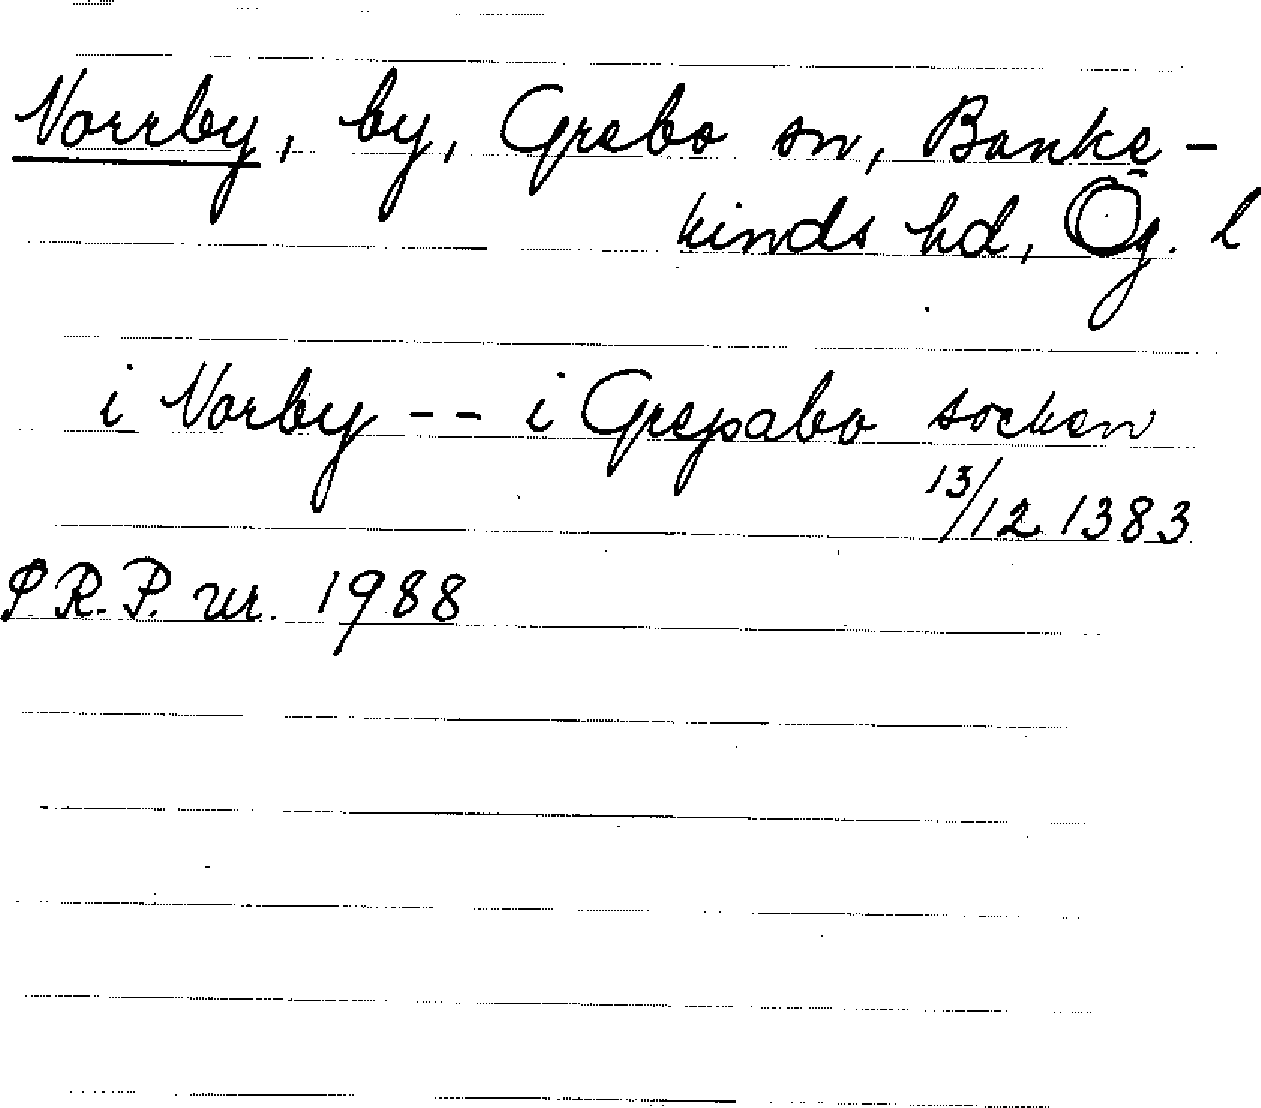 Norrby, by, Grebo sn, Banke-
kinds hd, Ög. l
i Norby -- i Grepabo socken
13/12 1383
S R.P. nr. 1988